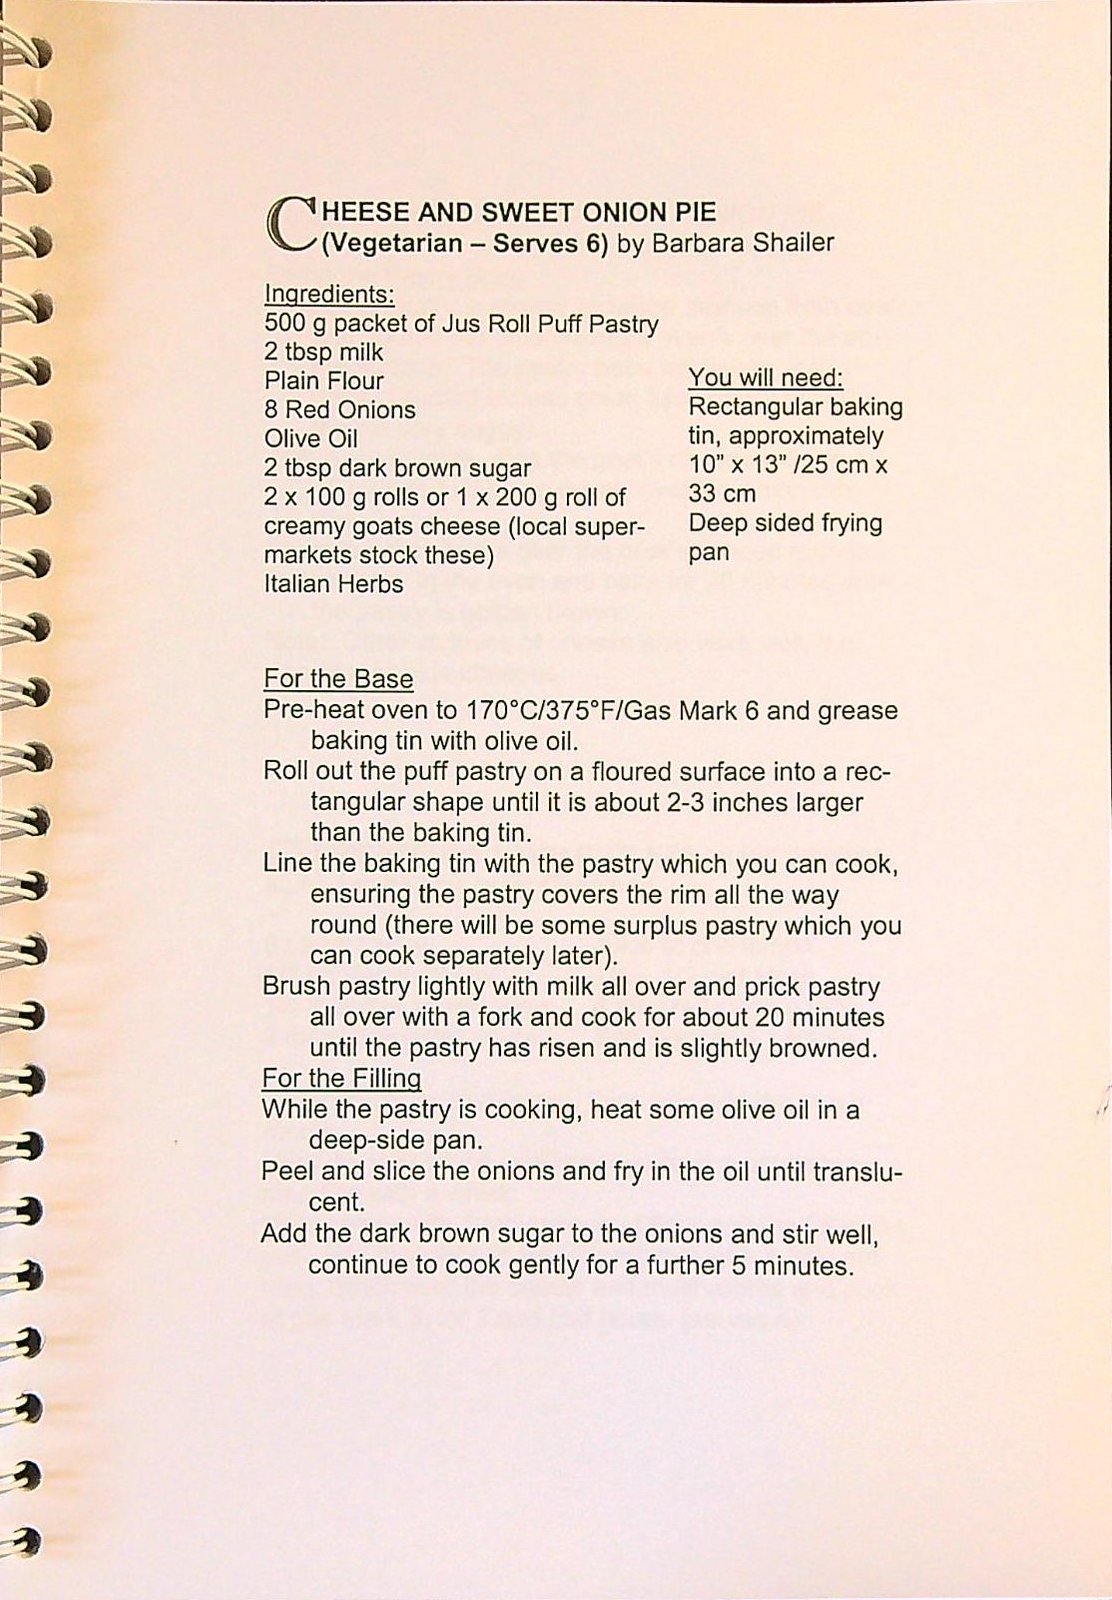 CHEESE AND SWEET ONION PIE
(Vegetarian – Serves 6) by Barbara Shailer
Ingredients:
500 g packet of Jus Roll Puff Pastry
2 tbsp milk
Plain Flour
8 Red Onions
Olive Oil
2 tbsp dark brown sugar
2 x 100 g rolls or 1 x 200 g roll of
creamy goats cheese (local super-
markets stock these)
Italian Herbs
You will need:
Rectangular baking
tin, approximately
10” x 13” /25 cm x
33 cm
Deep sided frying
pan
For the Base
Pre-heat oven to 170°C/375°F/Gas Mark 6 and grease
baking tin with olive oil.
Roll out the puff pastry on a floured surface into a rec-
tangular shape until it is about 2-3 inches larger
than the baking tin.
Line the baking tin with the pastry which you can cook,
ensuring the pastry covers the rim all the way
round (there will be some surplus pastry which you
can cook separately later).
Brush pastry lightly with milk all over and prick pastry
all over with a fork and cook for about 20 minutes
until the pastry has risen and is slightly browned.
For the Filling
While the pastry is cooking, heat some olive oil in a
deep-side pan.
Peel and slice the onions and fry in the oil until translu-
cent.
Add the dark brown sugar to the onions and stir well,
continue to cook gently for a further 5 minutes.